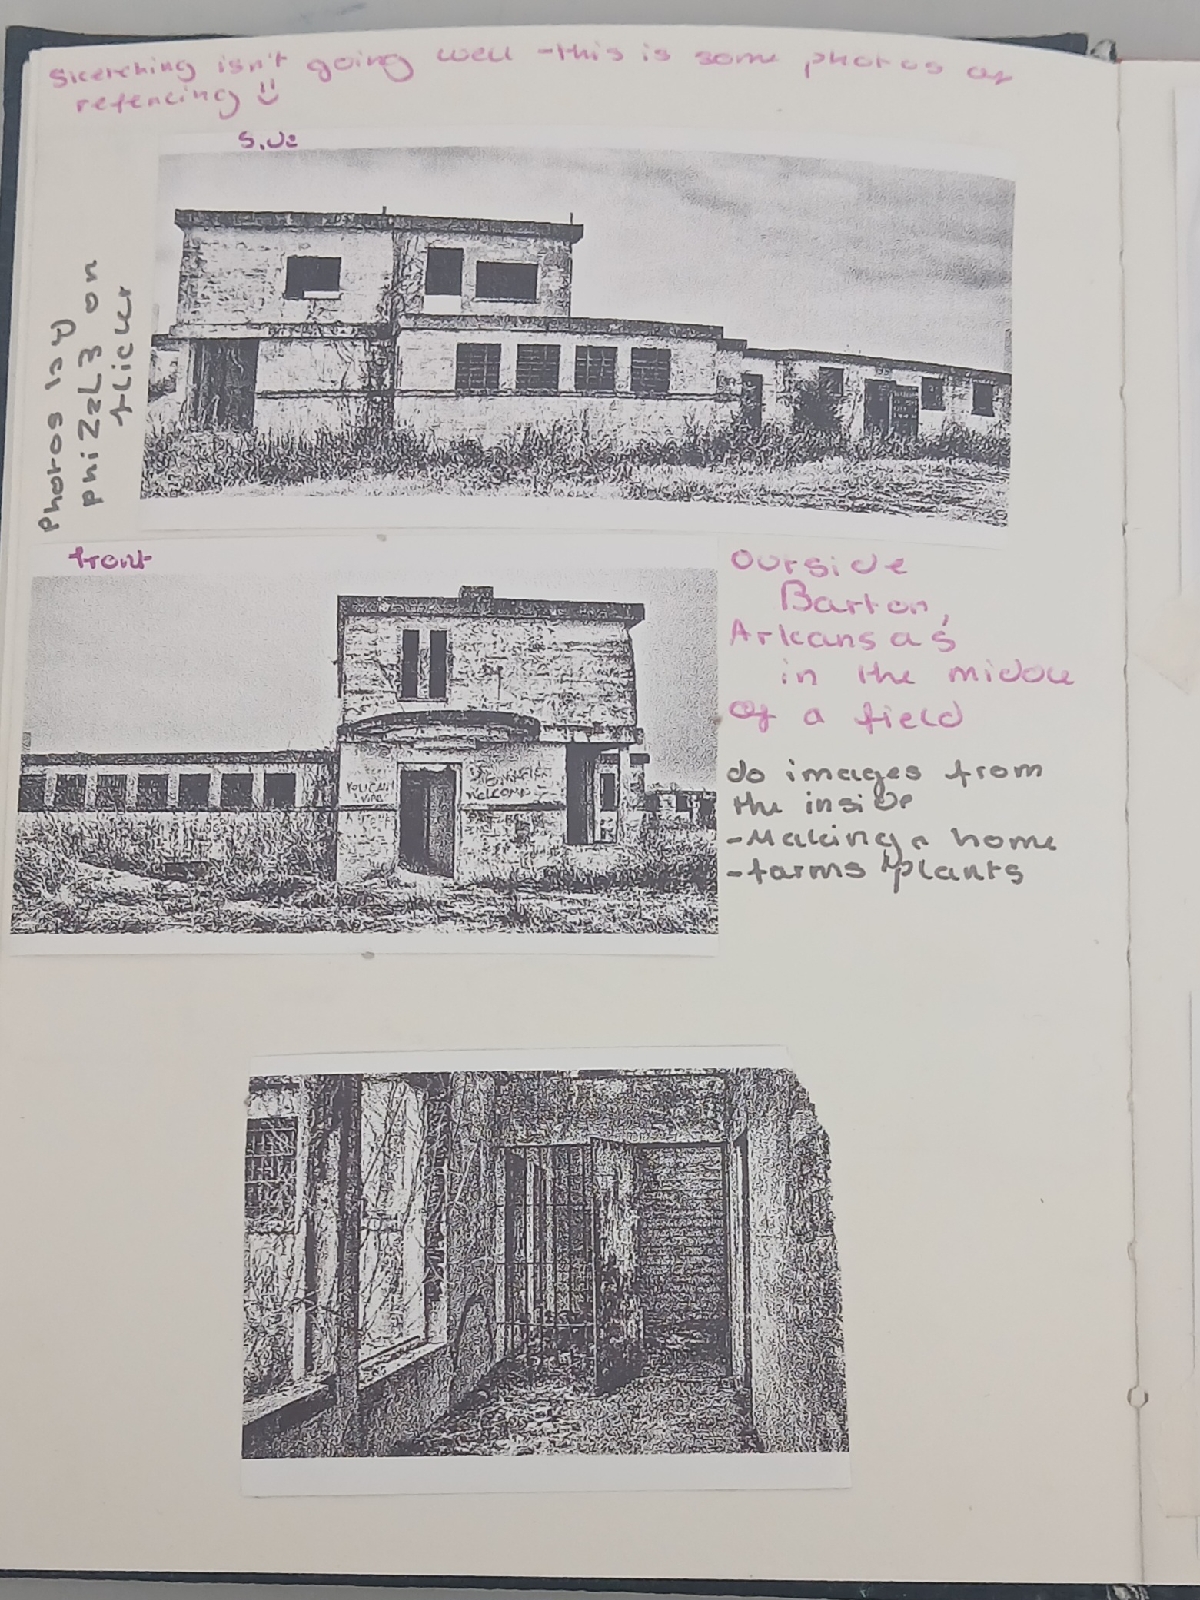 Sketching isn't going well - this is some photos of
refencing
Side
Photos by
phiZzL3 on
flicker
front
Outside
Barton,
Arkansas
in the middle
of a field
do images from
the inside
- Making a home
- farms plants
YOU CAN'T
WELCOME